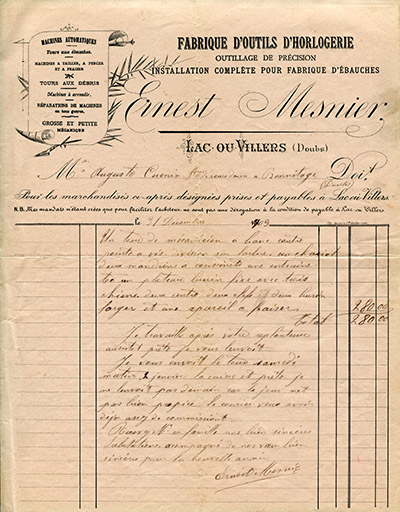 MACHINES AUTOMATIQUES
Tours aux ébauches.
MACHINES A TAILLER, A PERCER
ET A FRAISER
TOURS AUX DÉBRIS
Machines à arrondir.
RÉPARATIONS DE MACHINES
en tous genres.
GROSSE ET PETITE
MÉCANIQUE
FABRIQUE D'OUTILS D'HORLOGERIE
OUTILLAGE DE PRÉCISION
INSTALLATION COMPLÈTE POUR FABRIQUE D'ÉBAUCHES
Ernest Mesnier
LAC-OU-VILLERS (Doubs)
M Auguste Cuenin à Bonnétage Doit
(Doubs)
Pour les marchandises ci-après désignées prises et payables à Lac-ou-Villers
N.B. Mes mandats n'étant créés que pour faciliter l'acheteur ne sont pas une dérogation à la condition de payable à Lac-ou-Villers
le 31 Décembre 1909
Un tour de mécanicien a banc entre
pointe a vis, un chariot
deux mandrins a coussinets une
un plateau fixe avec trois
deux clefs et deux
forger et une appareil a fraiser 280.00
total 280.00
Je travaille après votre
aussitôt prête je vous l'envoit
Je vous envoit le tour samedi
matin 2 janvier prête je
ne l'envoit pas car le jour net
pas bien propice le courier vous avez
déjà assez de commissions
Recevez Mr en famille nos bien sincères
salutations acompagné de nos vœu bien
sincère pour la nouvelle année
Ernest Mesnier